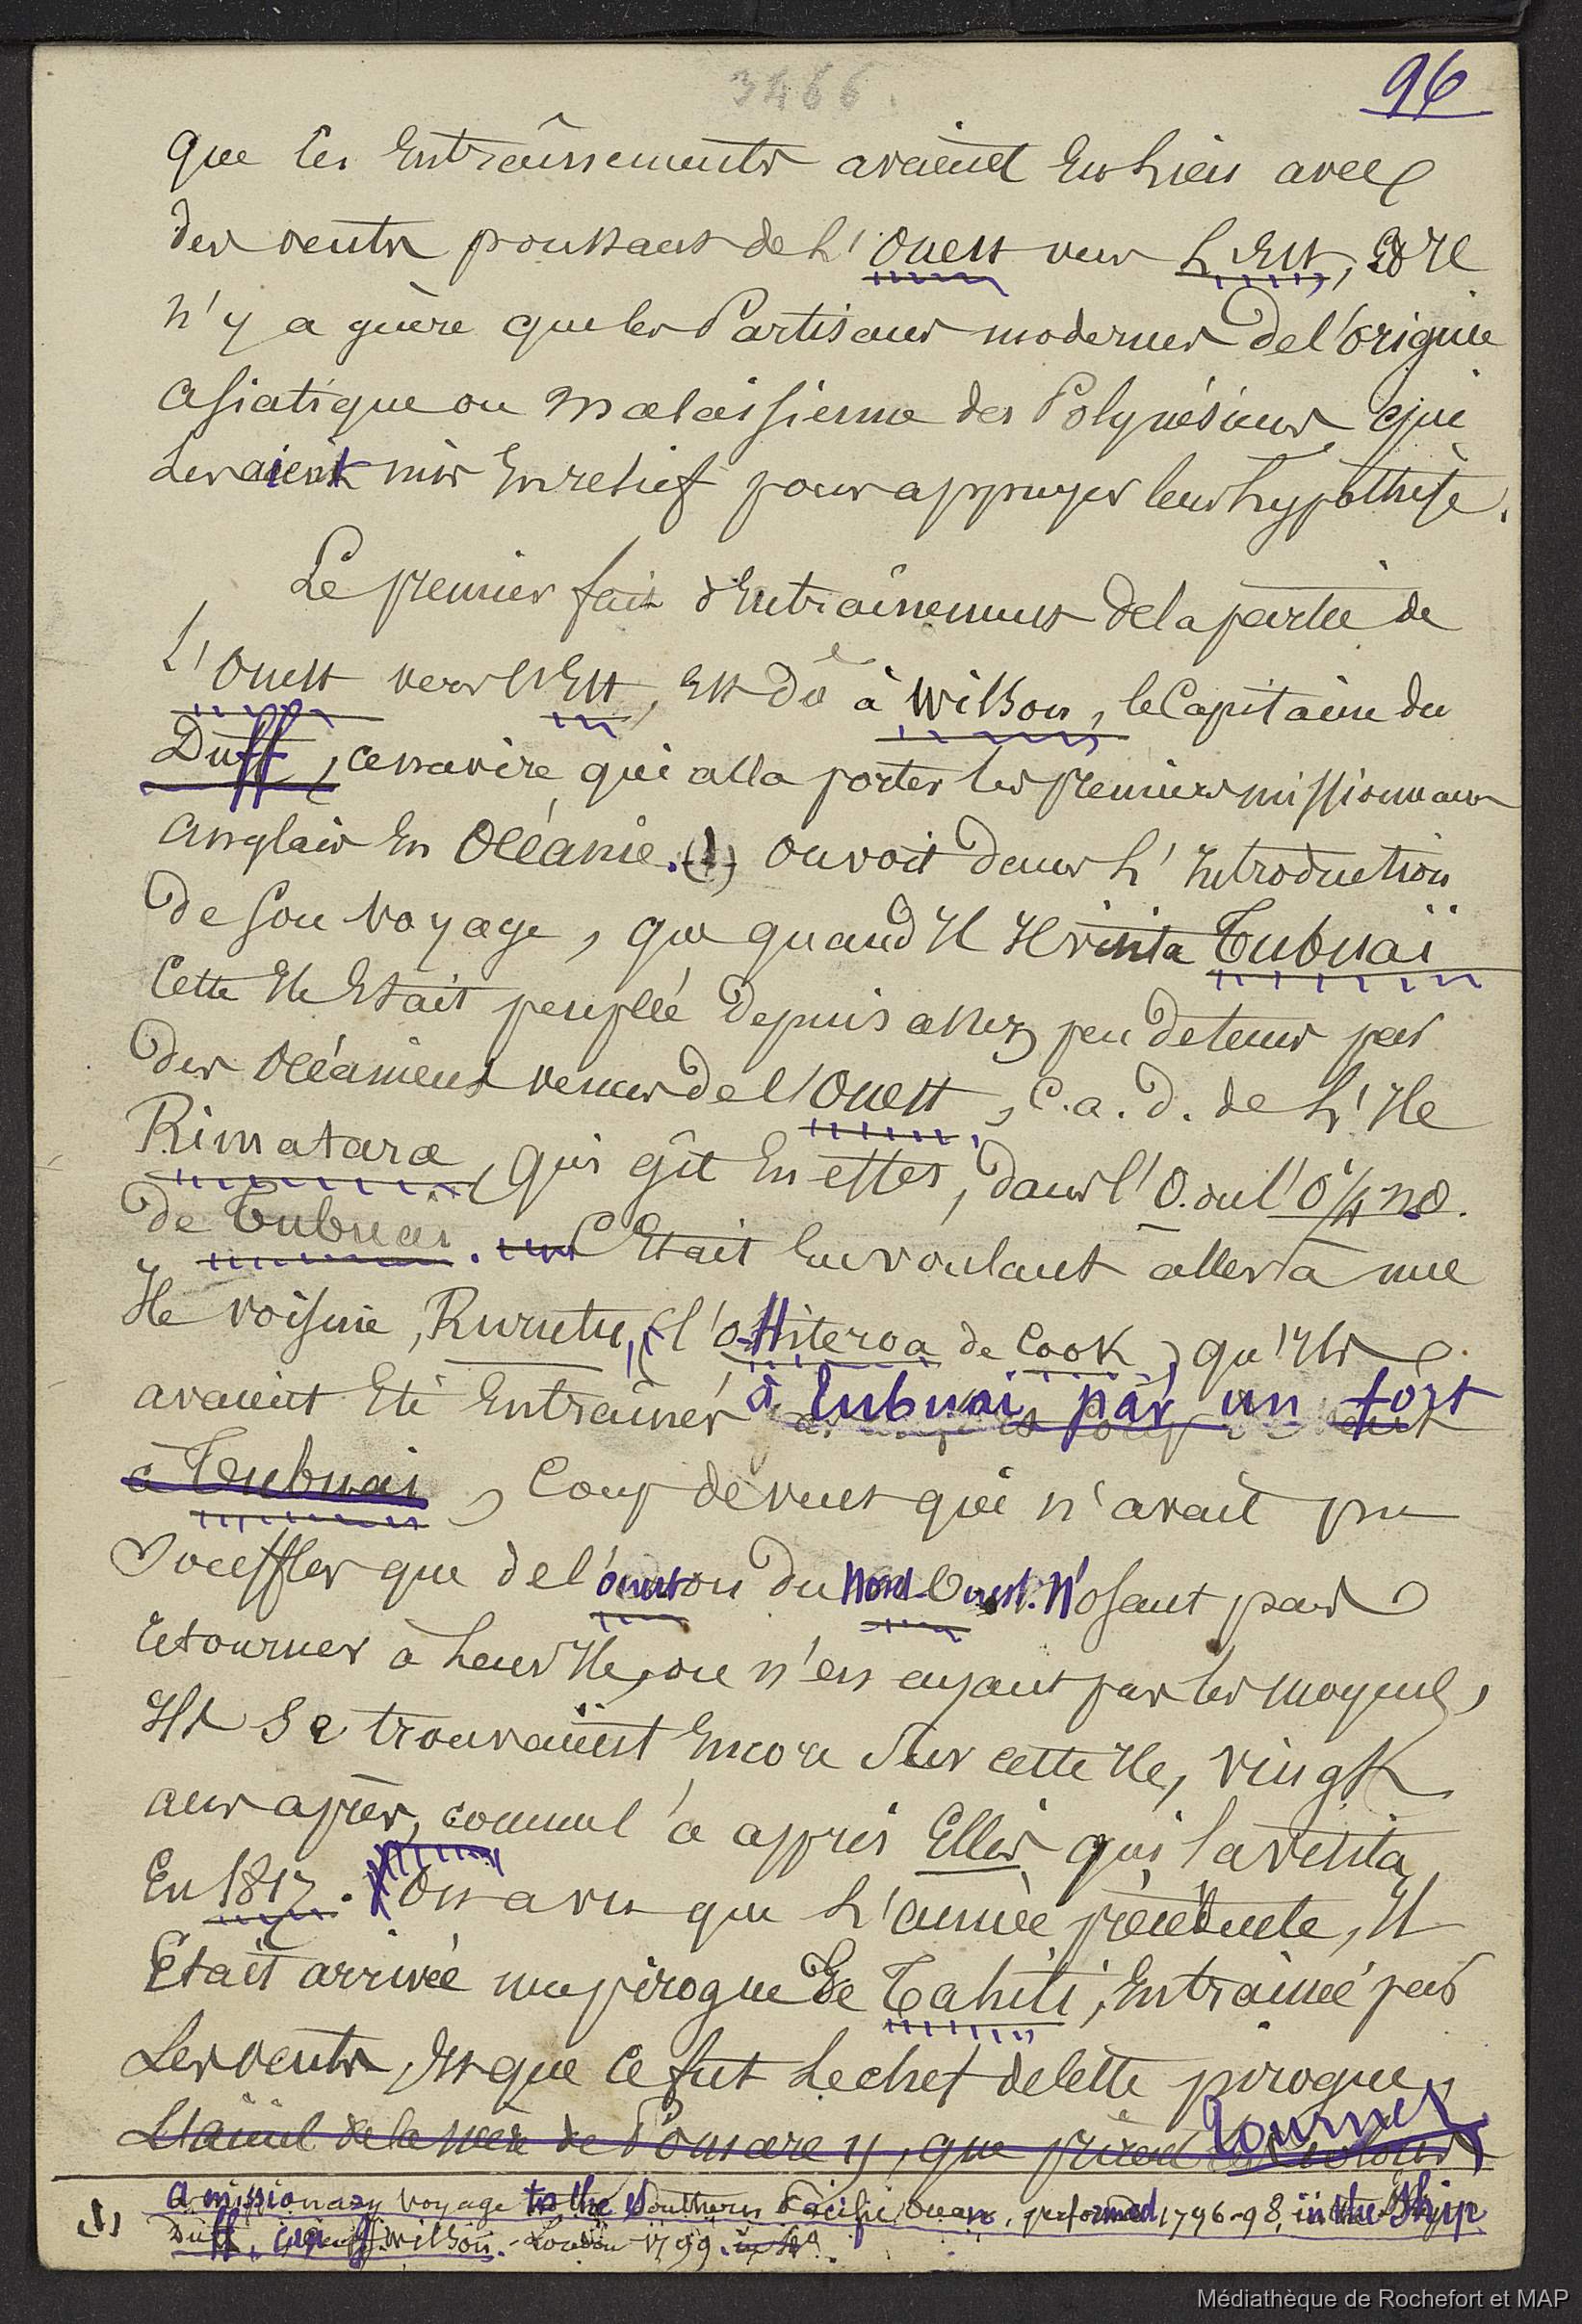 3466.
96
que les Entraînements avaient Eu lieu avec
des vents poussant de L'Ouest vers L'Est, Et Il
n'y a guère que les Partisans modernes de l'origine
asiatique ou malaisienne des Polynésiens, qui
Les aient mis En relief pour appuyer leur hypothèse.
Le premier fait d'Entraînement de la partie de
L'Ouest vers l'Est, Est dû à Wilson, le Capitaine du
Duff, ce navire qui alla porter les premiers missionnaires
anglais En Océanie. (1) On voit dans L'Introduction
de son voyage, que quand Il visita Tubuai
Cette Ile Etait peuplée depuis assez peu de temps par
des Océaniens venus de l'Ouest, c.a.d. de L'Ile
Rimatara, qui gît En effet, dans l'O. ou l'O 1/4 no.
de Tubuai. C'Etait En voulant aller à une
Ile voisine, Rurutu, (l'o-Hiteroa de Cook) qu'Ils
avaient Eté Entraînés à Tubuai par un fort
à Tubuai, Coup de vent qui n'avait pu
Souffler que de l'ouest ou du Nord-Ouest. N'osant pas
retourner à Leur Ile, ou n'en ayant pas les moyens,
Ils se trouvaient Encore sur cette Ile, vingt
ans après, comme l'a appris Ellis qui la visita
En 1817. On a vu que L'année précédente, Il
Etait arrivée une pirogue de Tahiti, Entraînée par
Les vents, Et que ce fut Le chef de cette pirogue,
L'aïeul de la mère de Pomare II, que Tournez
(1) a missionary voyage to the Southern Pacific Ocean, performed 1796-98, in the Ship
Duff, Wilson. - London 1799. in 4º.